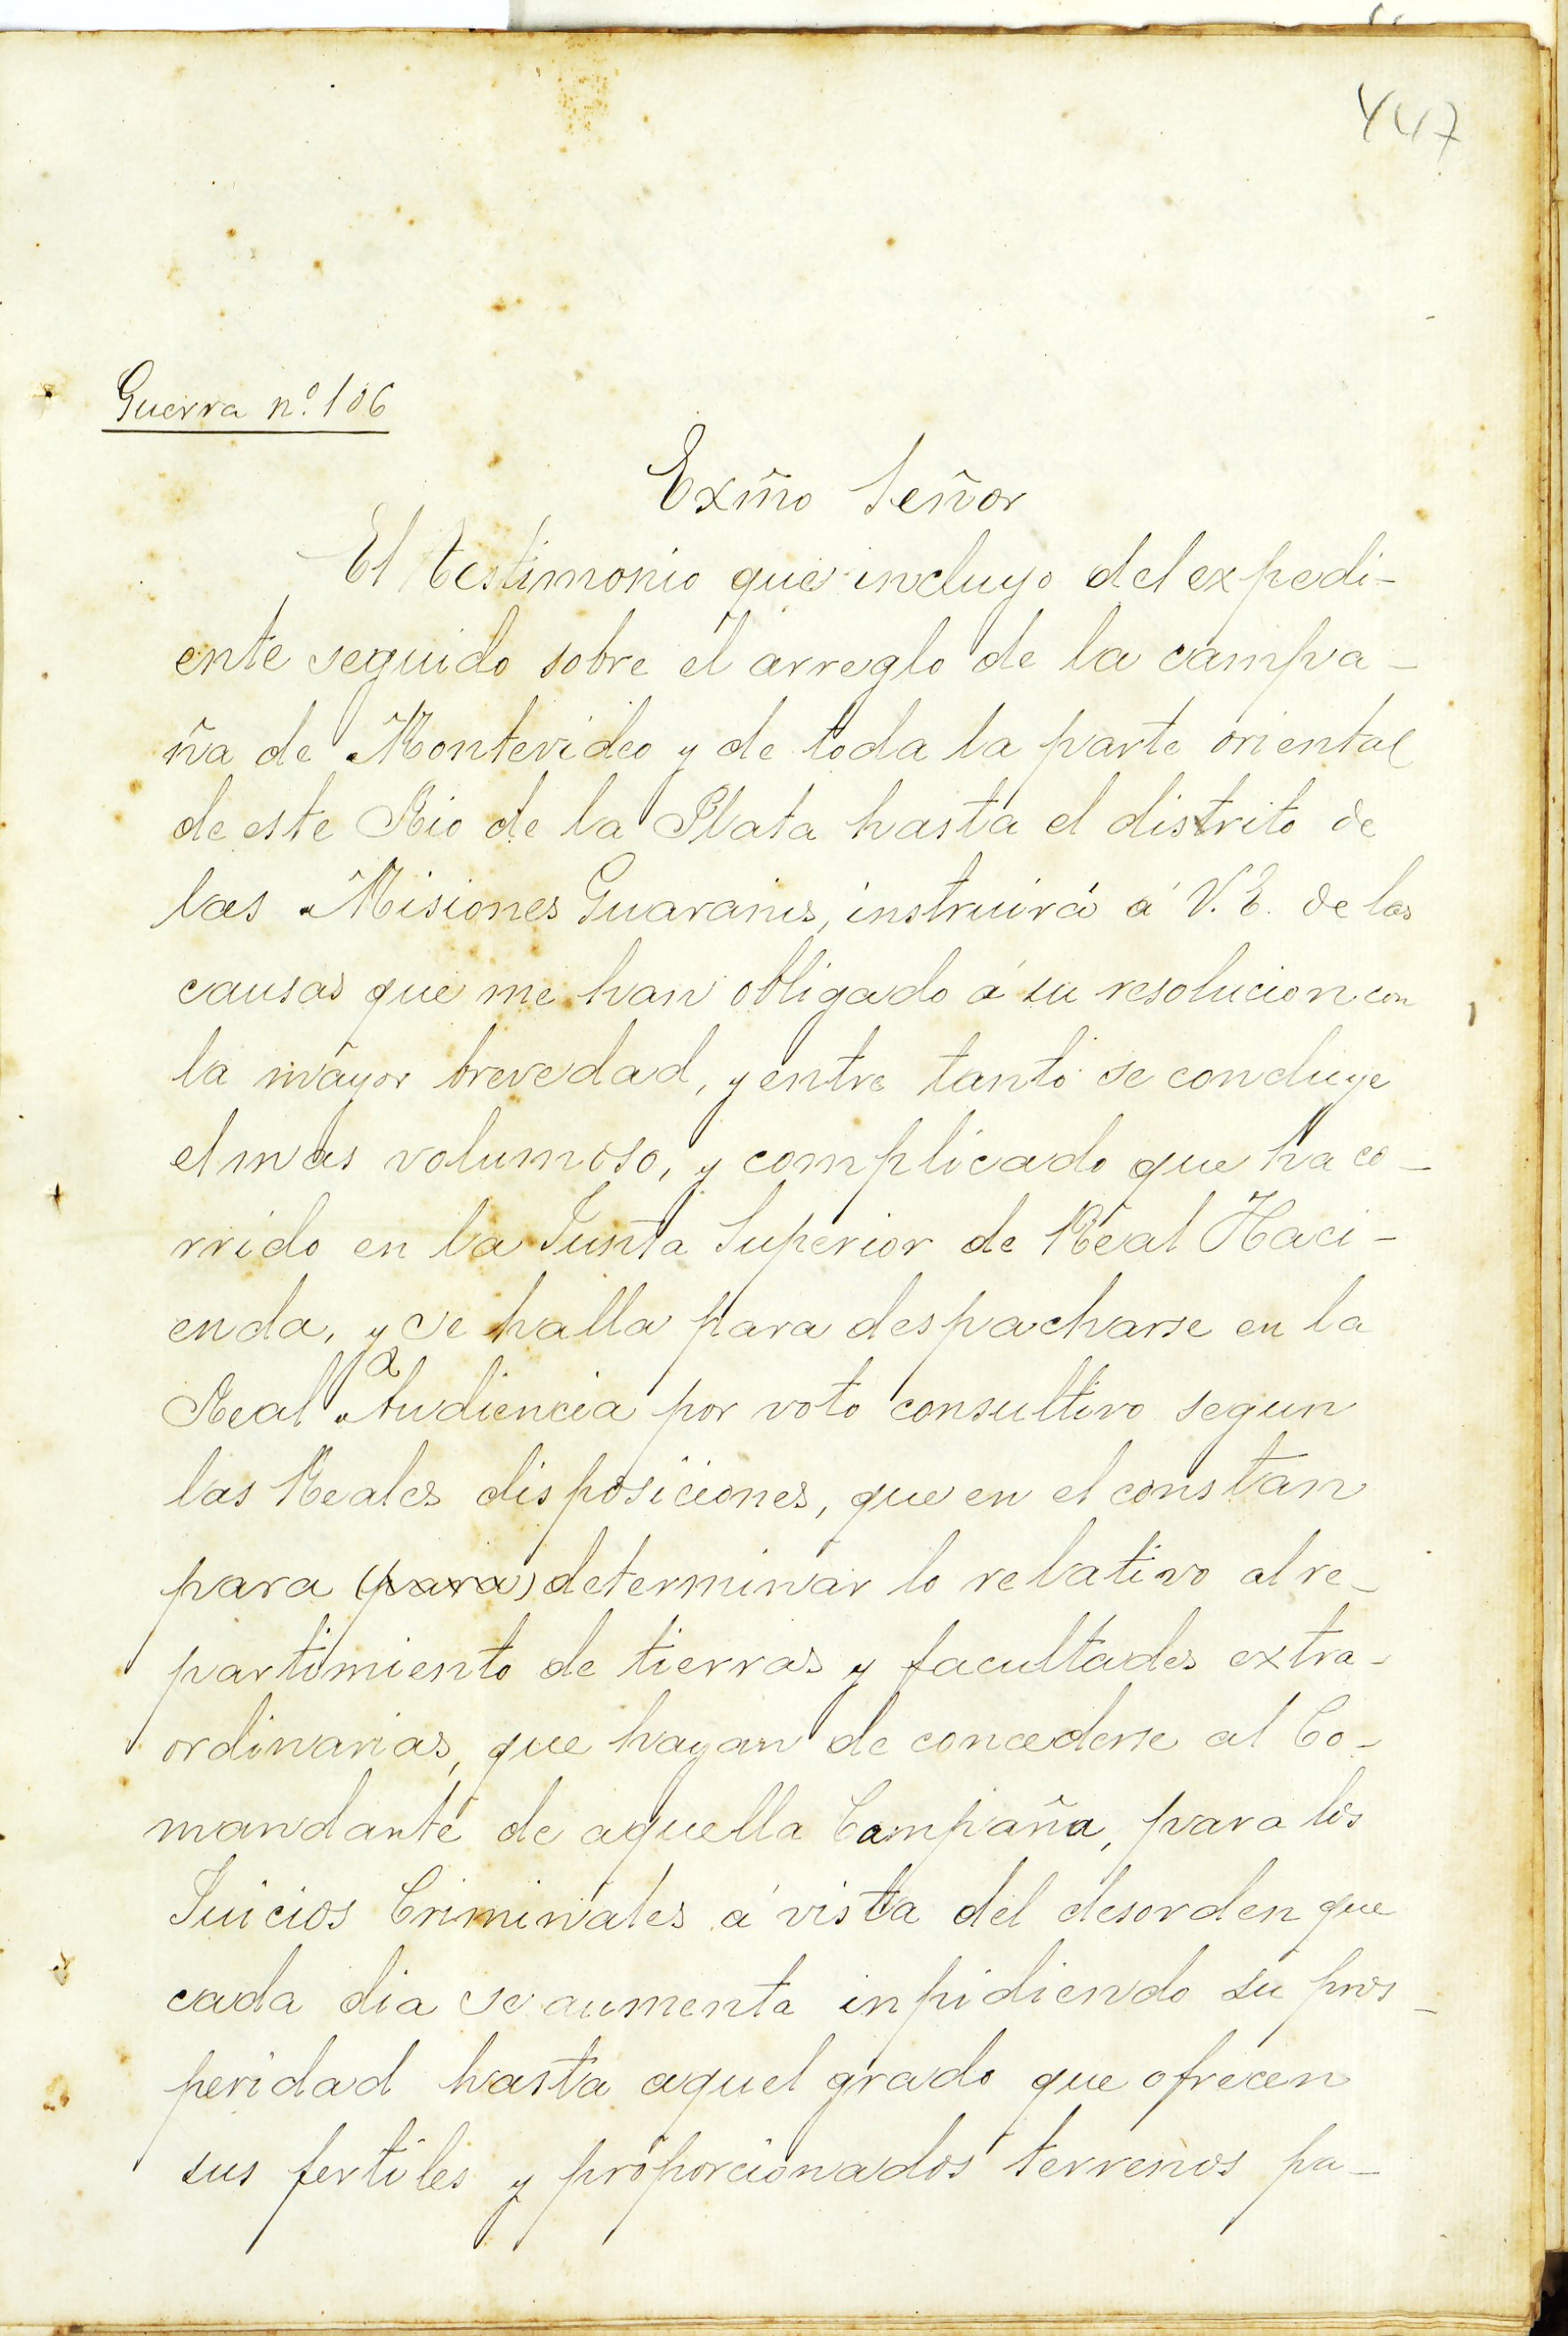 447
Guerra nº. 106
Exm̃o Señor
El testimonio que incluyo del expedi-
ente seguido sobre el arreglo de la campa-
ña de Montevideo y de toda la parte oriental
de este Rio de la Plata hasta el distrito de
las Misiones Guaranis, instruirá á V. E. de las
causas que me han obligado á su resolucion con
la mayor brevedad, y entre tanto se concluye
el mas volumoso, y complicado que ha co-
rrido en la Junta Superior de Real Haci-
enda, y se halla para despacharse en la
Real Audiencia por voto consultivo segun
las Reales disposiciones, que en el constan
para (para) determinar lo relativo al re-
partimiento de tierras y facultades extra-
ordinarias, que hayan de concederse al Co-
mandante de aquella Campaña, para los
Juicios Criminales á vista del desorden que
cada dia se aumenta inpidiendo su pros-
peridad hasta aquel grado que ofrecen
sus fertiles y proporcionados terrenos pa-